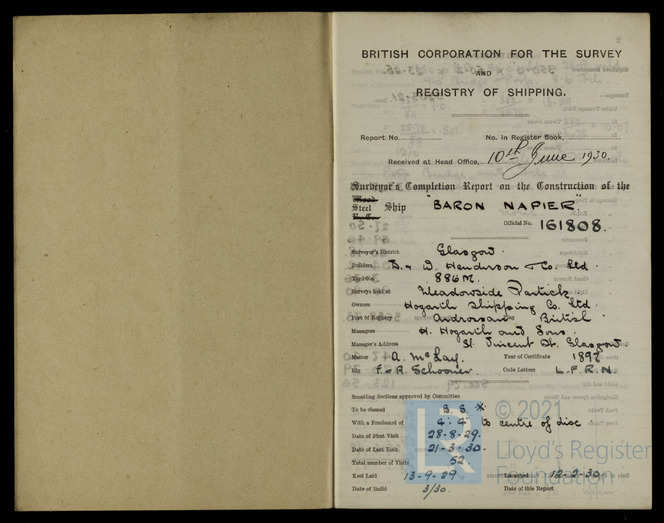 BRITISH CORPORATION FOR THE SURVEY
AND
REGISTRY OF SHIPPING.
Report No. No. in Register Book
Received at Head Office, 10th June 1930.
Surveyor's Completion Report on the Construction of the
Wood
Steel Ship "BARON NAPIER"
Official No. 161808.
Surveyor's District Glasgow.
Builders D. & W. Henderson & Co. Ltd.
Yard No. 886M.
Surveys held at Meadowside Partick.
Owners Hogarth Shipping Co. Ltd.
Port of Registry Ardrossan British
Managers H. Hogarth and Sons.
Manager's Address St. Vincent St. Glasgow.
Master A. McLay. Year of Certificate 1897
Rig F. & A. Schooner. Code Letters L.F.R.N.
Scantling Sections approved by Committee
To be classed B.S.*
With a Freeboard of 4' 4" to centre of disc
Date of First Visit 28-8-29.
Date of Last Visit 21-3-30.
Total number of Visits 52
Keel Laid 13-9-29 Launched 12-2-30.
Date of Build 3/30. Date of this Report
LR
© 2021
Lloyd's Register
Foundation